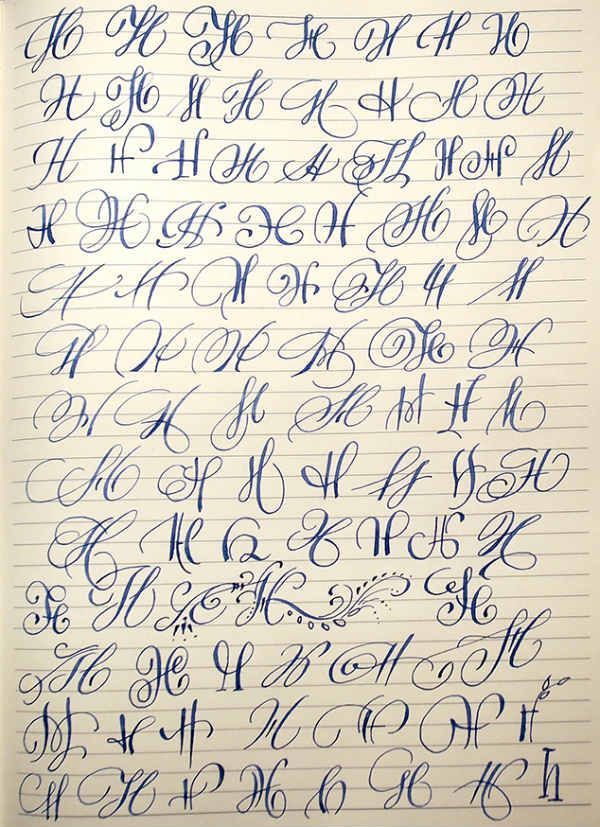 H H H H H H H
H H H H H H H H
H H H H H H H H H
H H H H H H H H
H H H H H H H
H H H H H H
H H H H H H H
H H H H H H H
H H H H H H H
H H H H
H H H H H H
H H H H H H H
H H H H h H H h